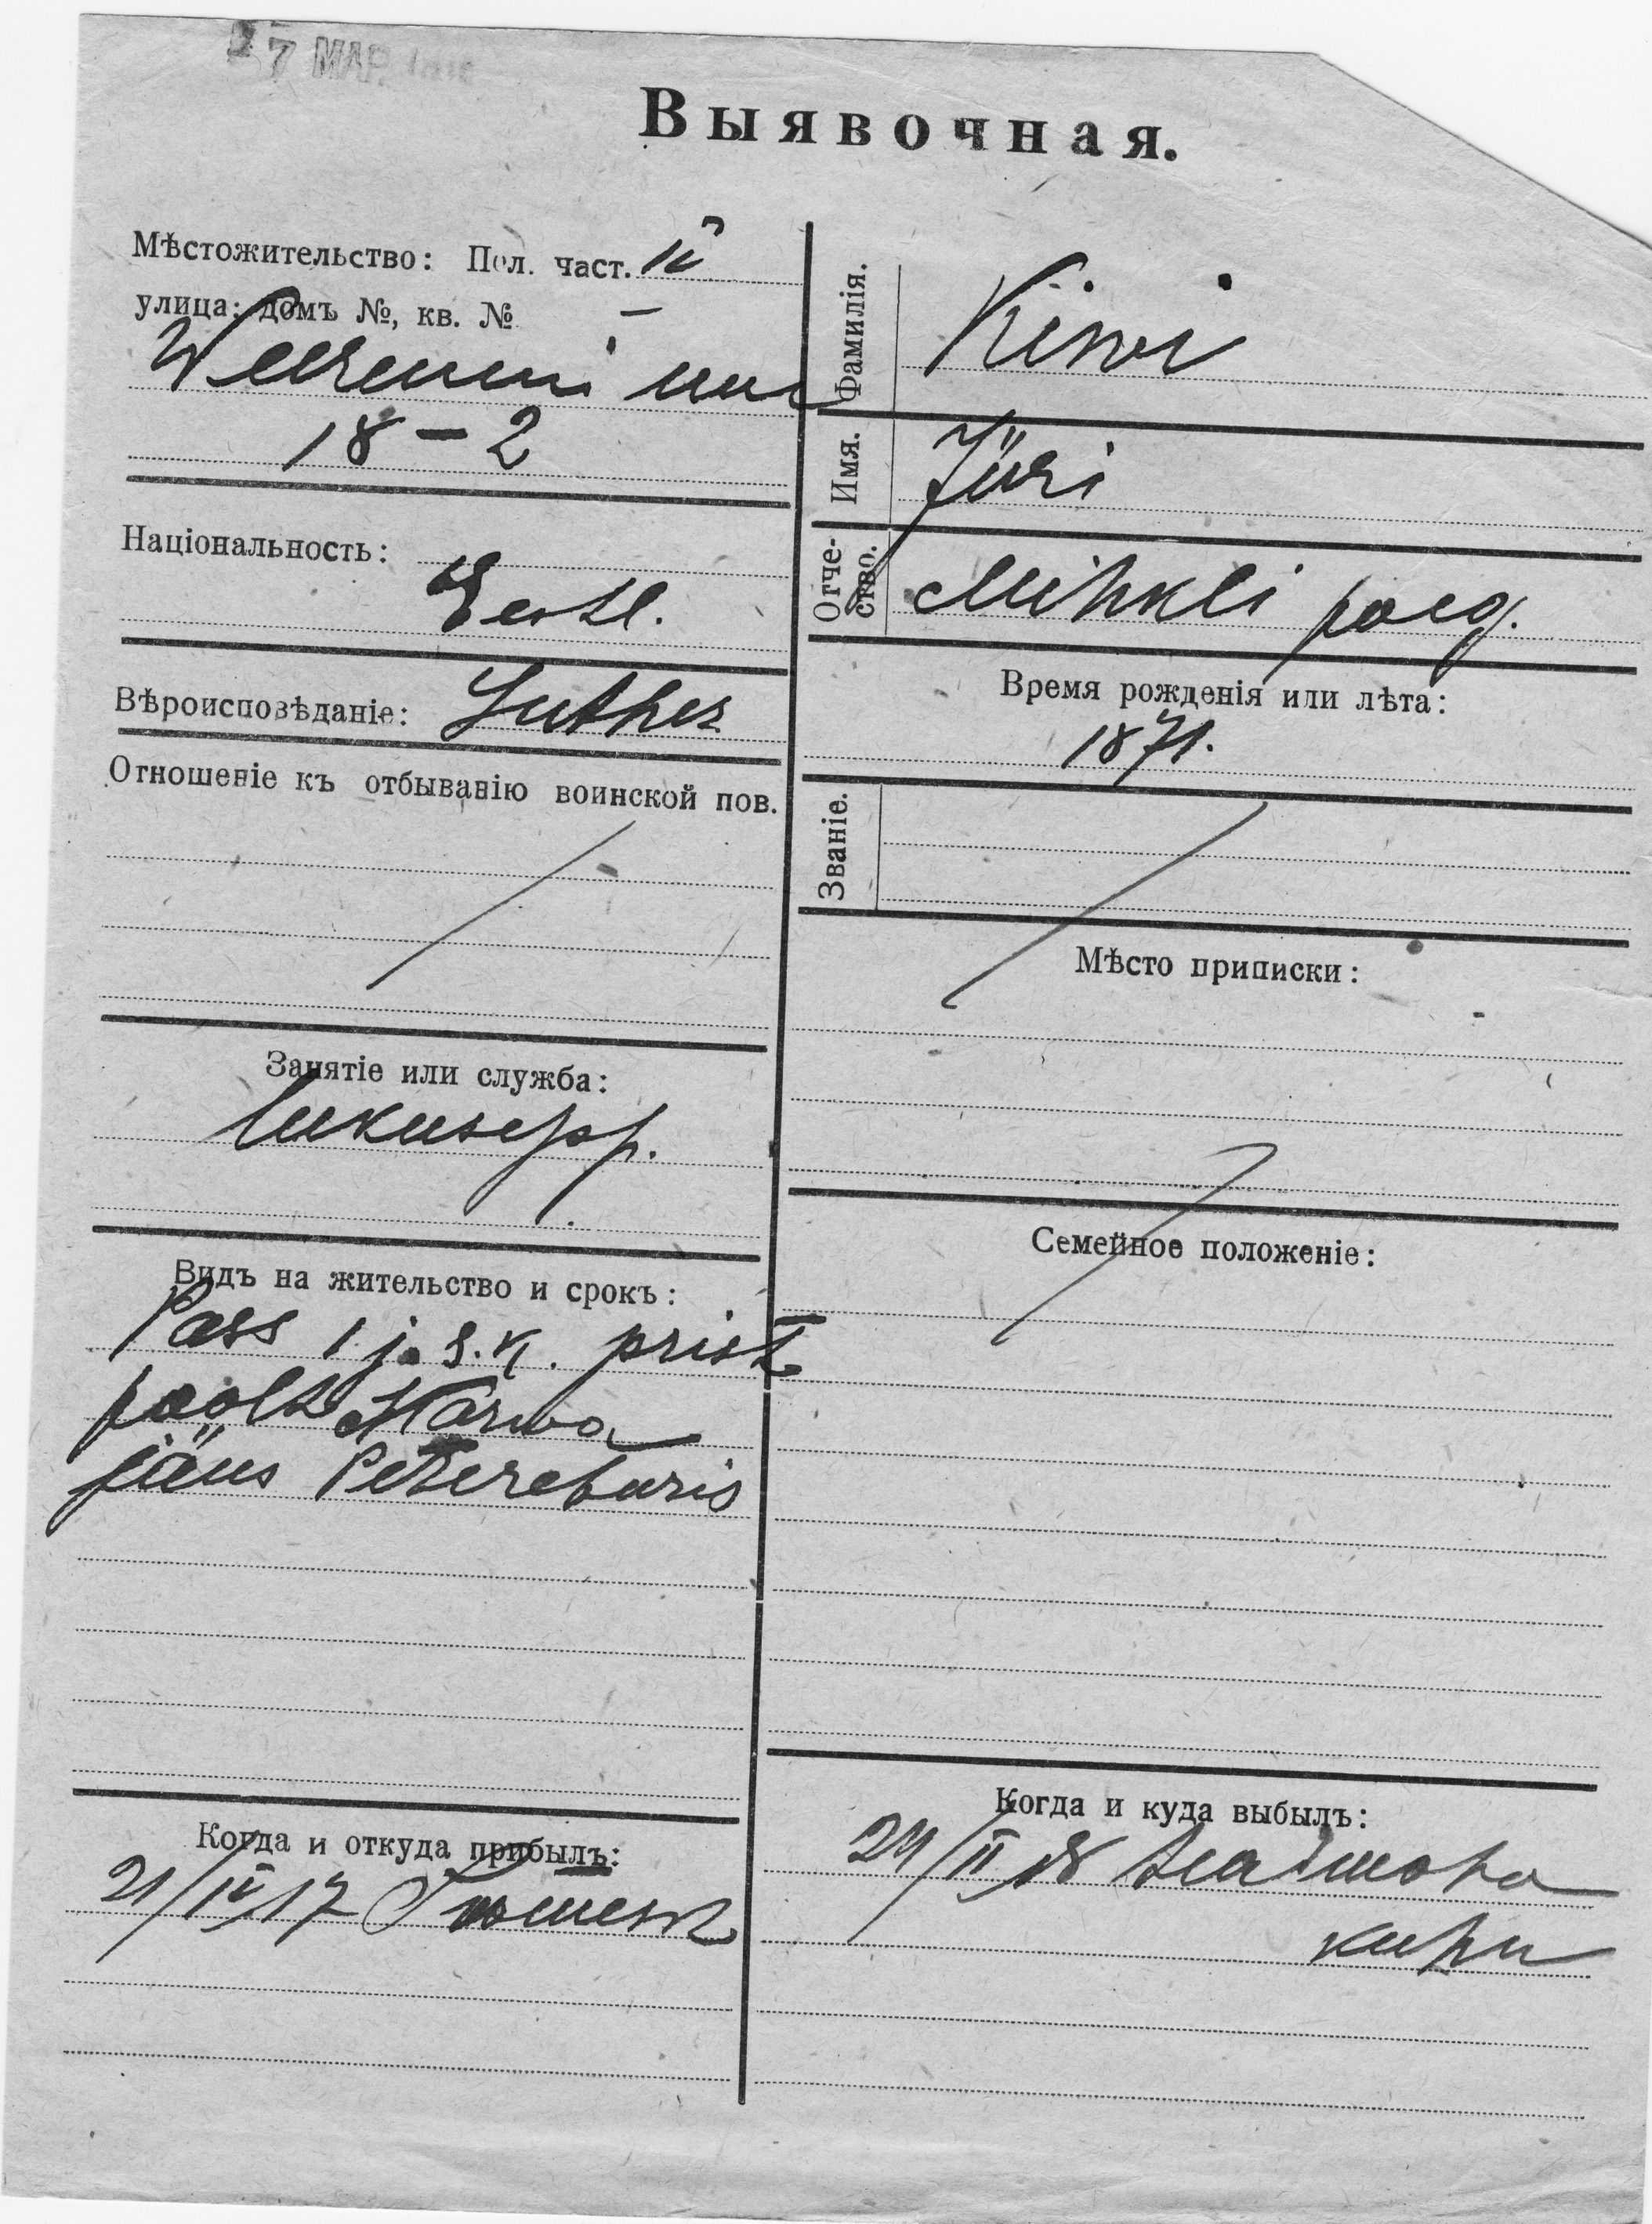 7 МАР.
Выявочная.
Мѣстожительство: Пол. част. IV
улица: домъ №, кв. № —
18 – 2
Національность:
Eestl.
Вѣроисповѣданіе: Luther
Отношеніе къ отбыванію воинской пов.
Занятіе или служба:
lukusepp.
Видъ на жительство и срокъ:
Pass 1. ja 3. K. prist
poolt Narwa
jäus Petereburis
Когда и откуда прибылъ:
21/IV 17
Фамилія. Kiwi
Имя. Jüri
Отчество. Mihkli poeg.
Время рожденія или лѣта:
1871.
Званіе.
Мѣсто приписки:
Семейное положеніе:
Когда и куда выбылъ:
24/II 18 teadmata
kuhu